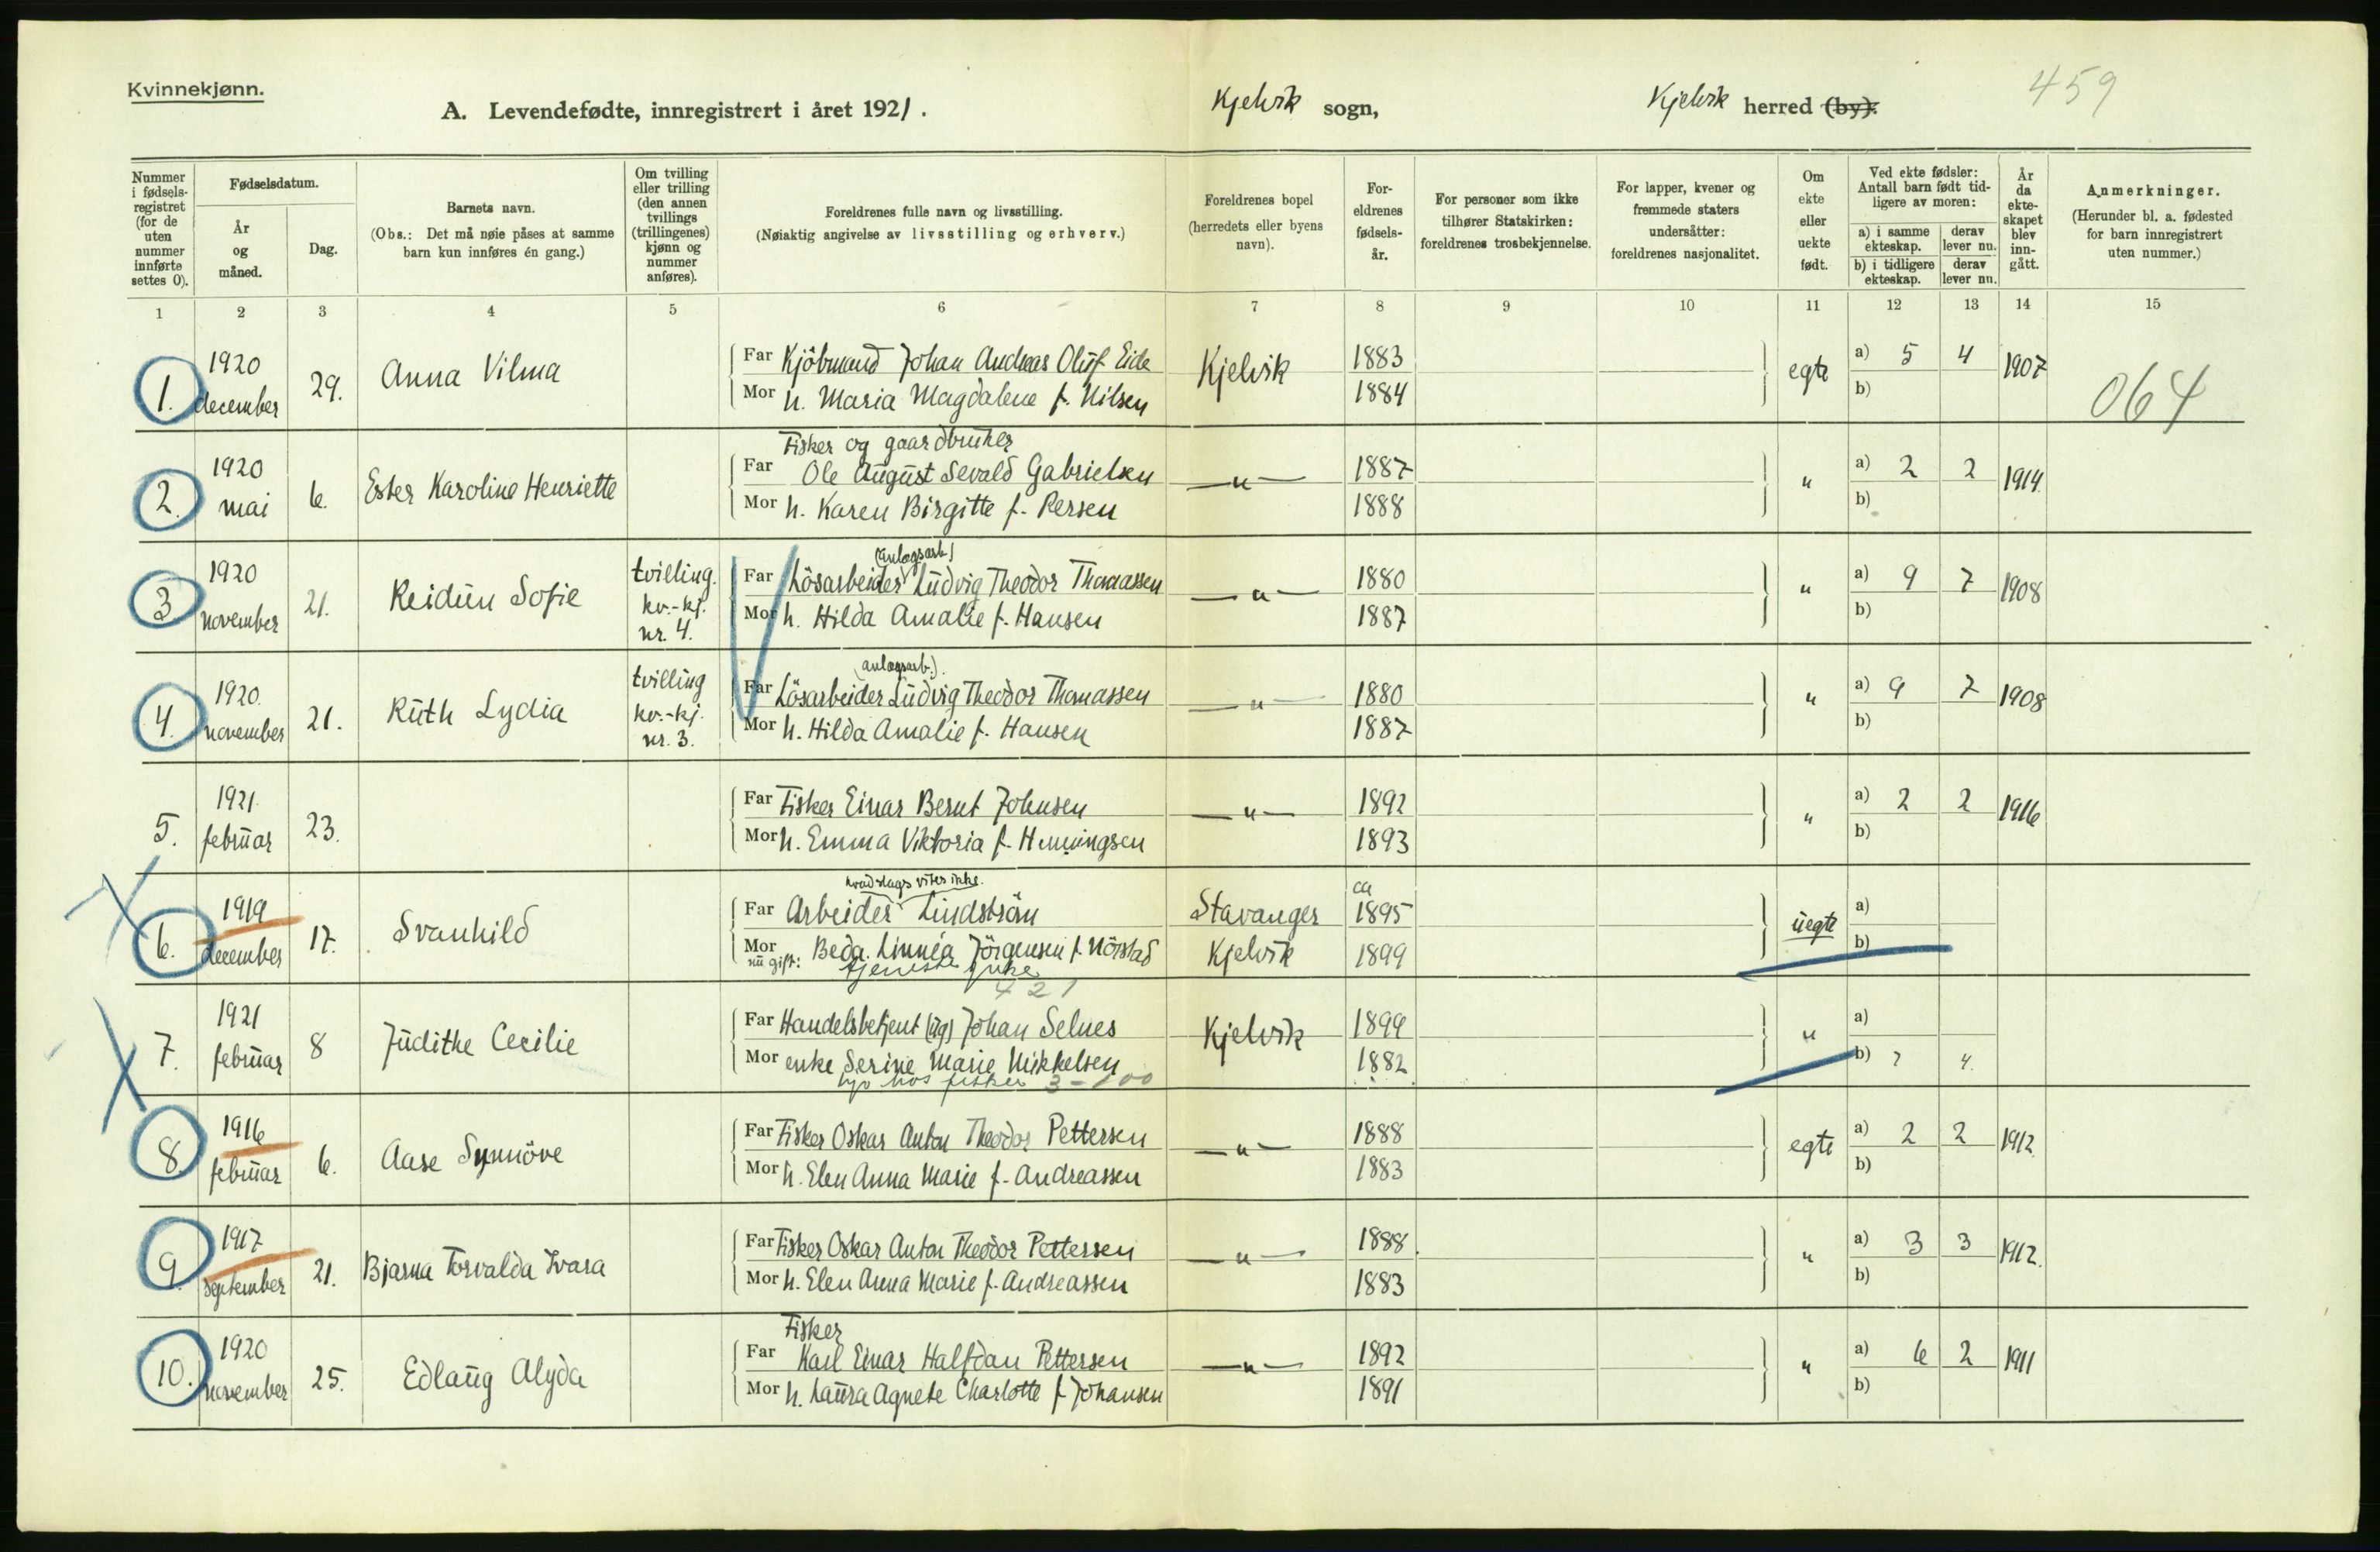 Kvinnekjønn.
A. Levendefødte, innregistrert i året 1921.
Kjelvik sogn,
Kjelvik herred (by).
459
Nummer i fødsels-registret (for de uten nummer innførte settes 0).
Fødselsdatum.
År og måned.
Dag.
Barnets navn.
(Obs.: Det må nøie påses at samme barn kun innføres én gang.)
Om tvilling eller trilling (den annen tvillings (trillingenes) kjønn og nummer anføres).
Foreldrenes fulle navn og livsstilling.
(Nøiaktig angivelse av livsstilling og erhverv.)
Foreldrenes bopel (herredets eller byens navn).
For-eldrenes fødsels-år.
For personer som ikke tilhører Statskirken: foreldrenes trosbekjennelse.
For lapper, kvener og fremmede staters undersåtter: foreldrenes nasjonalitet.
Om ekte eller uekte født.
Ved ekte fødsler: Antall barn født tid-ligere av moren:
a) i samme ekteskap. derav lever nu.
b) i tidligere ekteskap. derav lever nu.
År da ekte-skapet blev inn-gått.
Anmerkninger.
(Herunder bl. a. fødested for barn innregistrert uten nummer.)
1 2 3 4 5 6 7 8 9 10 11 12 13 14 15
1. 1920 december 29. Anna Vilma
Far Kjöbmand Johan Andreas Oluf Eide Kjelvik 1883 egte a) 5 4 1907
Mor h. Maria Magdalene f. Nilsen 1884 b)
064
2. 1920 mai 6. Ester Karoline Henriette
Fisker og gaardbruker
Far Ole August Sevald Gabrielsen —"— 1887 " a) 2 2 1914.
Mor h. Karen Birgitte f. Persen 1888 b)
3 1920 november 21. Reidun Sofie tvilling. kv.-kj. nr. 4.
(anlægsarb.)
Far Lösarbeider Ludvig Theodor Thomassen —"— 1880 " a) 9 7 1908
Mor h. Hilda Amalie f. Hansen 1887 b)
4. 1920. november 21. Ruth Lydia tvilling kv.-kj. nr. 3.
(anlægsarb.).
Far Lösarbeider Ludvig Theodor Thomassen —"— 1880 " a) 9 7 1908
Mor h. Hilda Amalie f. Hansen 1887 b)
5. 1921. februar 23.
Far Fisker Einar Bernt Johnsen —"— 1892 " a) 2 2 1916
Mor h. Emma Viktoria f. Henningsen 1893 b)
6. 1919 december 17. Svanhild
hvad slags vites ikke.
Far Arbeider Lindström Stavanger ca 1895 uegte a)
Mor nu gift: Beda Linnéa Jörgensen f. Nörstad Kjelvik 1899 b)
tjeneste pike
421
7. 1921 februar 8 Judithe Cecilie
Far Handelsbetjent (ug) Johan Selnes Kjelvik 1899 " a)
Mor enke Serine Marie Mikkelsen 1882 b) 7 4.
hjo hos fisker 3-100
8. 1916 februar 6. Aase Synnöve
Far Fisker Oskar Anton Theodor Pettersen —"— 1888 egte a) 2 2 1912.
Mor h. Elen Anna Marie f. Andreassen 1883 b)
9. 1917 september 21. Bjarna Torvalda Ivara
Far Fisker Oskar Anton Theodor Pettersen —"— 1888. " a) 3 3 1912.
Mor h. Elen Anna Marie f. Andreassen 1883 b)
10. 1920 november 25. Edlaug Alyda
Fisker
Far Karl Einar Halfdan Pettersen —"— 1892 " a) 6 2 1911
Mor h. Laura Agnete Charlotte f. Johansen 1891 b)